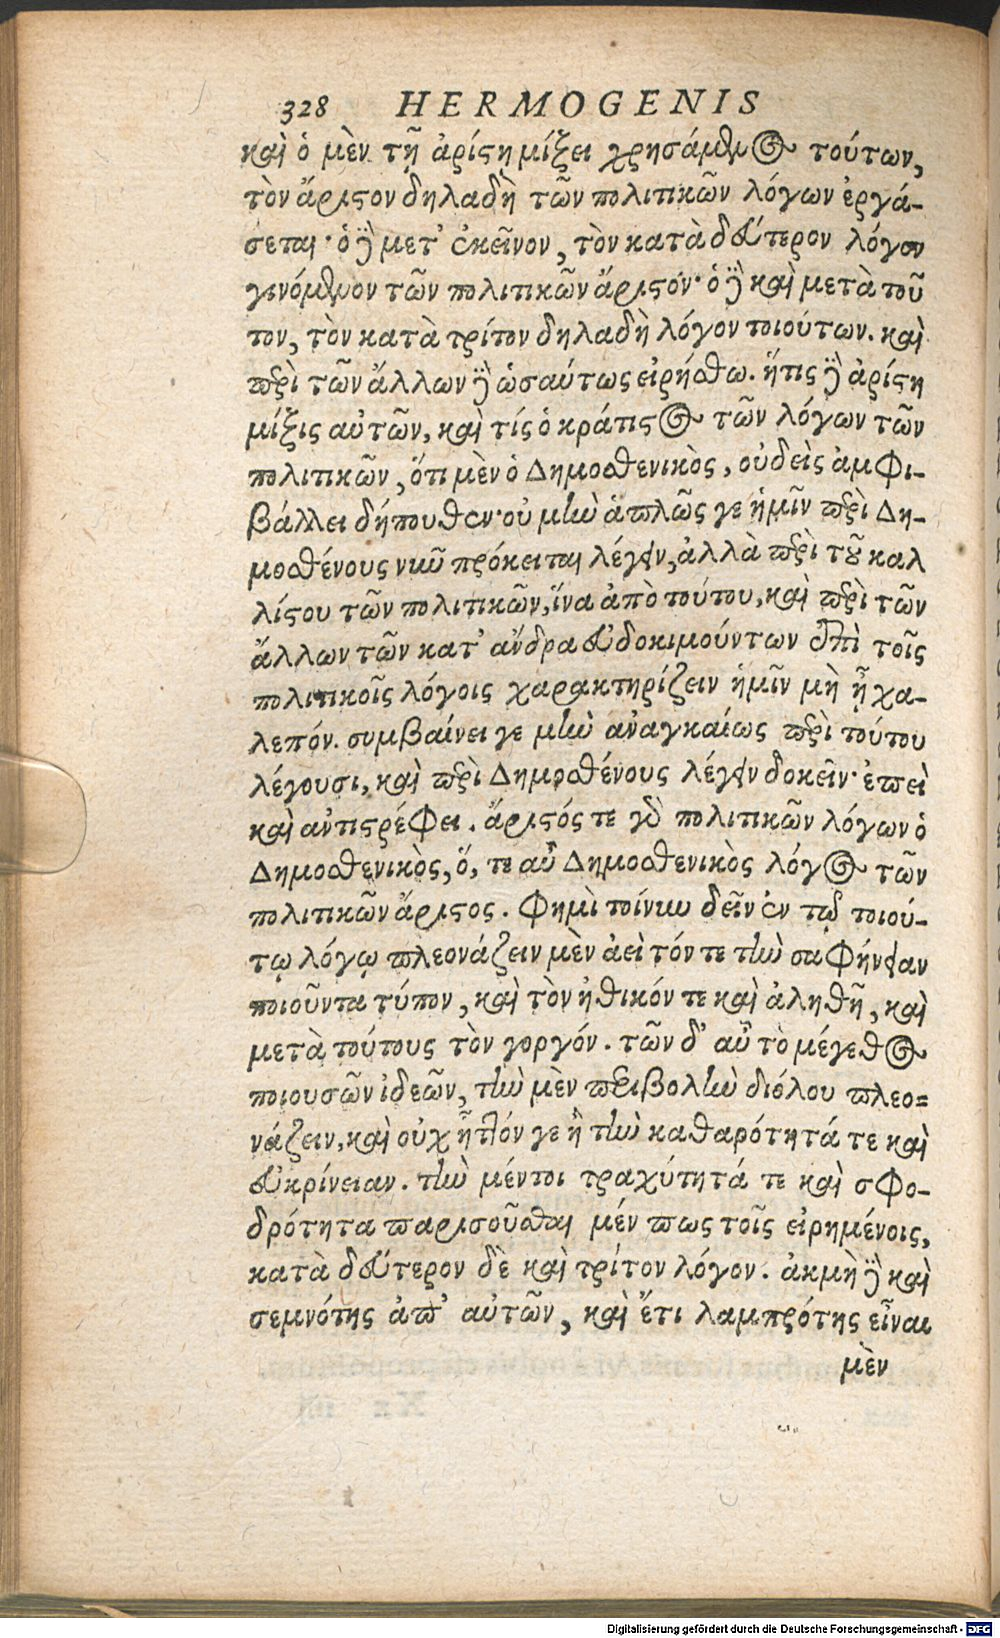 328 HERMOGENIS
καὶ ὁ μὲν τῇ ἀρίστῃ μίξει χρησάμενος τούτων,
τὸν ἄριστον δηλαδὴ τῶν πολιτικῶν λόγων ἐργά-
σεται· ὁ δὲ μετ' ἐκεῖνον, τὸν κατὰ δεύτερον λόγον
γενόμενον τῶν πολιτικῶν ἄριστόν· ὁ δὲ καὶ μετὰ τοῦ
τον, τὸν κατὰ τρίτον δηλαδὴ λόγον τοιούτων. καὶ
περὶ τῶν ἄλλων δὲ ὡσαύτως εἰρήσθω. ἥτις δὲ ἀρίστη
μίξις αὐτῶν, καὶ τίς ὁ κράτιστος τῶν λόγων τῶν
πολιτικῶν, ὅτι μὲν ὁ Δημοσθενικὸς, οὐδεὶς ἀμφι-
βάλλει δήπουθεν· οὐ μὴν ἁπλῶς γε ἡμῖν περὶ Δη-
μοσθένους νῦν πρόκειται λέγειν, ἀλλὰ περὶ τοῦ καλ
λίστου τῶν πολιτικῶν, ἵνα ἀπὸ τούτου, καὶ περὶ τῶν
ἄλλων τῶν κατ' ἄνδρα εὐδοκιμούντων ἐπὶ τοῖς
πολιτικοῖς λόγοις χαρακτηρίζειν ἡμῖν μὴ ᾖ χα-
λεπόν. συμβαίνει γε μὴν ἀναγκαίως περὶ τούτου
λέγουσι, καὶ περὶ Δημοσθένους λέγειν δοκεῖν· ἐπεὶ
καὶ ἀντιστρέφει. ἄριστός τε γὰρ πολιτικῶν λόγων ὁ
Δημοσθενικὸς, ὅ, τε αὖ Δημοσθενικὸς λόγος τῶν
πολιτικῶν ἄριστος. Φημὶ τοίνυν δεῖν ἐν τῷ τοιού-
τῳ λόγῳ πλεονάζειν μὲν ἀεὶ τόν τε τὴν σαφήνειαν
ποιοῦντα τύπον, καὶ τὸν ἠθικόν τε καὶ ἀληθῆ, καὶ
μετὰ τούτους τὸν γοργόν. τῶν δ' αὖ τὸ μέγεθος
ποιουσῶν ἰδεῶν, τὴν μὲν περιβολὴν διόλου πλεο-
νάζειν, καὶ οὐχ ἧττόν γε ἢ τὴν καθαρότητά τε καὶ
εὐκρίνειαν. τὴν μέντοι τραχύτητά τε καὶ σφο-
δρότητα παρισοῦσθαι μέν πως τοῖς εἰρημένοις,
κατὰ δεύτερον δὲ καὶ τρίτον λόγον. ἀκμὴ δὲ καὶ
σεμνότης ἀπ' αὐτῶν, καὶ ἔτι λαμπρότης εἶναι
μὲν
Digitalisierung gefördert durch die Deutsche Forschungsgemeinschaft - DFG